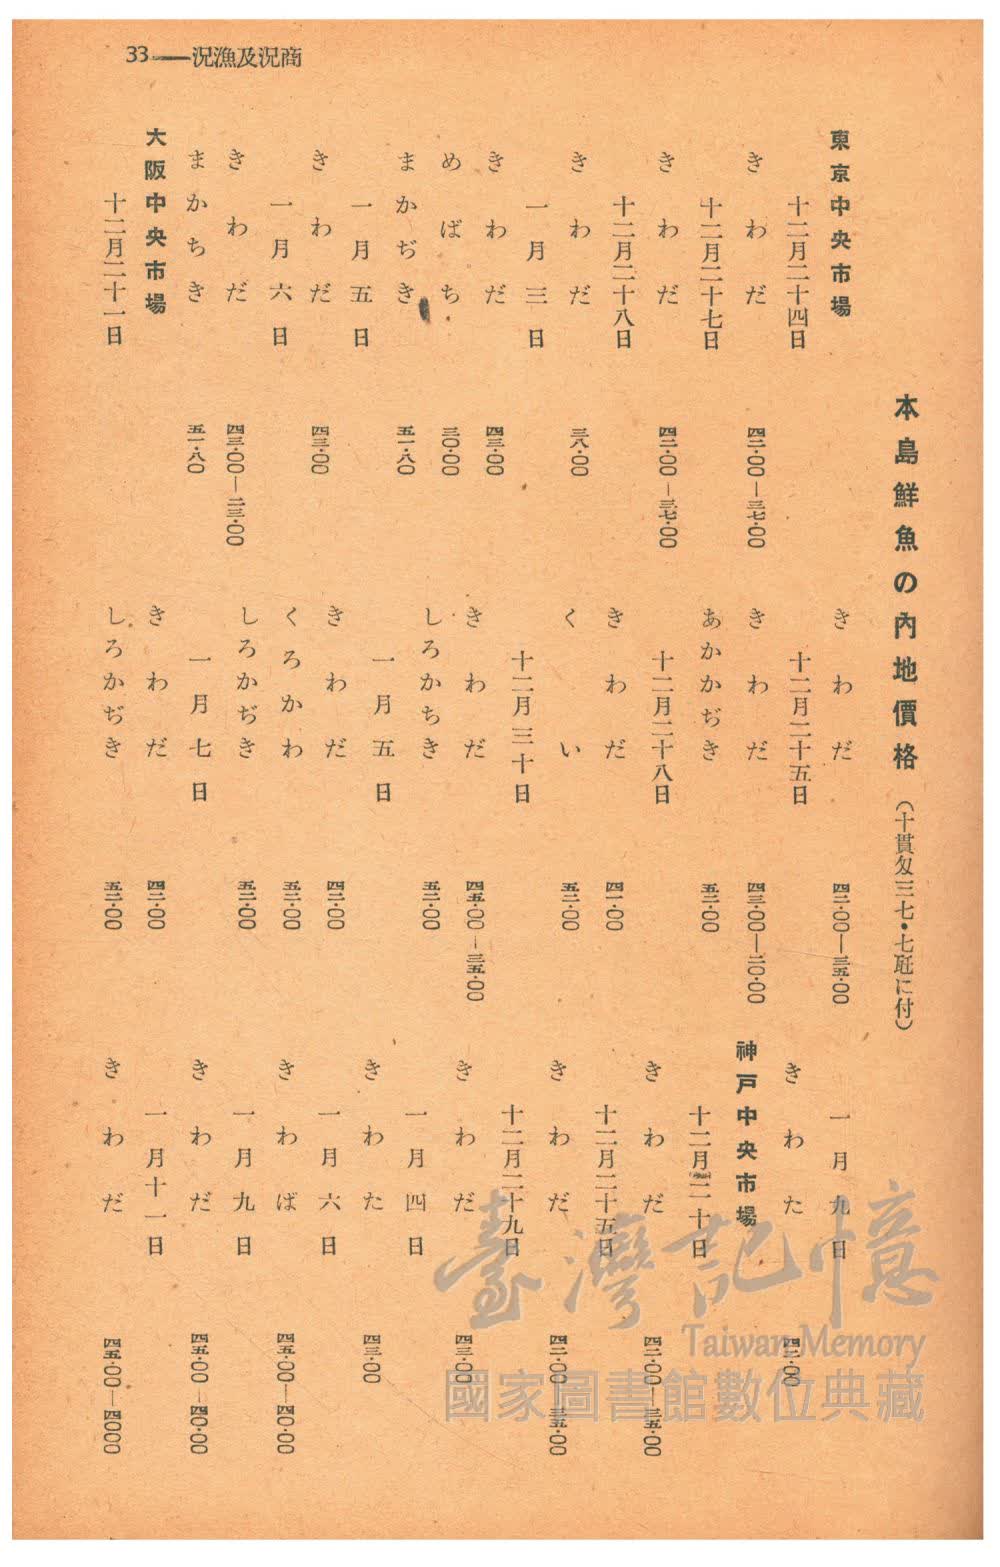 33——況漁及況商
本島鮮魚の內地價格（十貫匁三七・七瓩に付）
東京中央市場
十二月二十四日
きわだ 四二・〇〇―三七・〇〇
十二月二十七日
きわだ 四二・〇〇―三七・〇〇
十二月二十八日
きわだ 三八・〇〇
一月三日
きわだ 四三・〇〇
めばち 三〇・〇〇
まかぢき 五一・八〇
一月五日
きわだ 四三・〇〇
一月六日
きわだ 四三・〇〇―二三・〇〇
まかちき 五一・八〇
大阪中央市場
十二月二十一日
きわだ 四二・〇〇―三五・〇〇
十二月二十五日
きわだ 四三・〇〇―二〇・〇〇
あかかぢき 五二・〇〇
十二月二十八日
きわだ 四一・〇〇
くい 五二・〇〇
十二月三十日
きわだ 四五・〇〇―三五・〇〇
しろかちき 五二・〇〇
一月五日
きわだ 四二・〇〇
くろかわ 五二・〇〇
しろかぢき 五二・〇〇
一月七日
きわだ 四二・〇〇
しろかぢき 五二・〇〇
一月九日
きわた 四三・〇〇
神戸中央市場
十二月二十日
きわだ 四二・〇〇―三五・〇〇
十二月二十五日
きわだ 四二・〇〇 三五・〇〇
十二月二十九日
きわだ 四三・〇〇
一月四日
きわた 四三・〇〇
一月六日
きわば 四五・〇〇―四〇・〇〇
一月九日
きわだ 四五・〇〇―四〇・〇〇
一月十一日
きわだ 四五・〇〇―四〇〇〇
臺灣記憶
Taiwan Memory
國家圖書館數位典藏